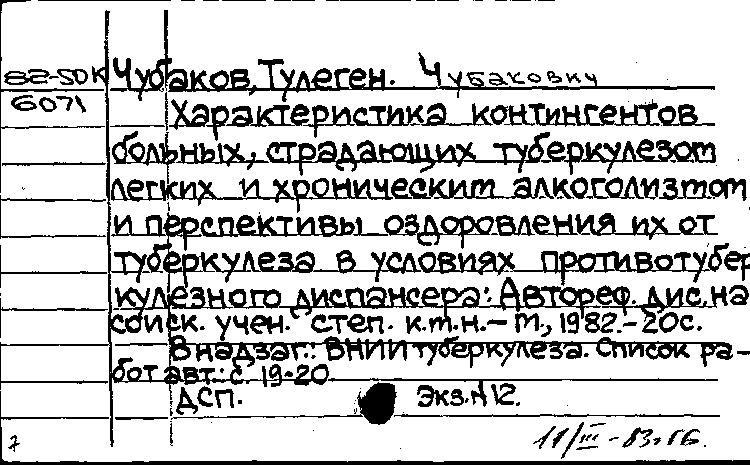 82-5DK Чубаков, Тулеген. Чубакович
6071 Характеристика контингентов
больных, страдающих туберкулезом
легких и хроническим алкоголизмом
и перспективы оздоровления их от
туберкулеза в условиях противотубер
кулезного диспансера: Автореф. дис. на
соиск. учен. степ. к.м.н. – М., 1982. – 20с.
В надзаг.: ВНИИ туберкулеза. Список ра–
бот авт.: с. 19-20.
ДСП. Экз. N 12.
7 11/III – 83г.